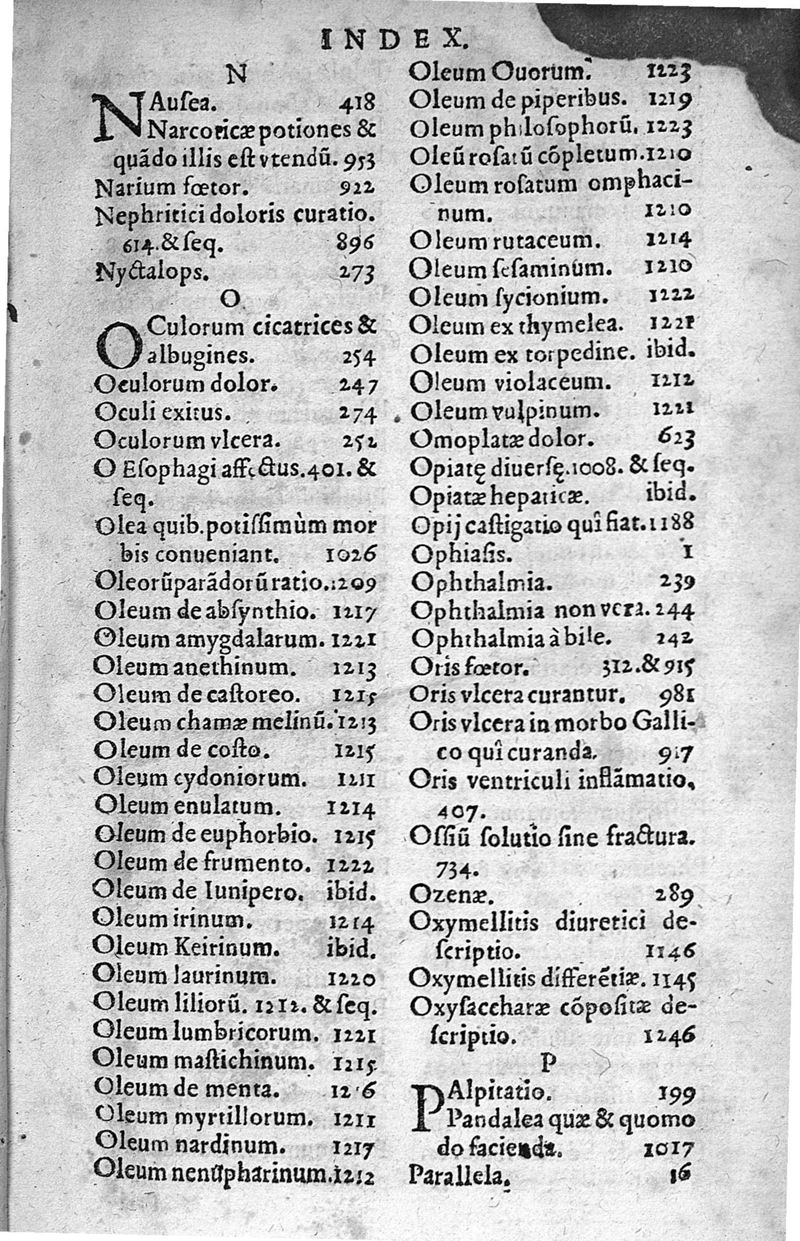 INDEX.
N
NAuſea. 418
Narcoticæ potiones &
quãdo illis eſt vtendũ. 953
Narium fœtor. 922
Nephritici doloris curatio.
614.& ſeq. 896
Nyctalops. 273
O
OCulorum cicatrices &
albugines. 254
Oculorum dolor. 247
Oculi exitus. 274
Oculorum vlcera. 252
O Eſophagi affectus.401. &
ſeq.
Olea quib.potiſſimùm mor
bis conueniant. 1026
Oleorũ parãdorũ ratio.1209
Oleum de abſynthio. 1217
Oleum amygdalarum. 1221
Oleum anethinum. 1213
Oleum de caſtoreo. 1215
Oleum chamæmelinũ. 1213
Oleum de coſto. 1215
Oleum cydoniorum. 1211
Oleum enulatum. 1214
Oleum de euphorbio. 1215
Oleum de frumento. 1222
Oleum de Iunipero. ibid.
Oleum irinum. 1214
Oleum Keirinum. ibid.
Oleum laurinum. 1220
Oleum liliorũ. 1212. & ſeq.
Oleum lumbricorum. 1221
Oleum maſtichinum. 1215
Oleum de menta.
Oleum myrtillorum. 1211
Oleum nardinum. 1217
Oleum nenupharinum.1212
Oleum Ouorum. 1223
Oleum de piperibus. 1219
Oleum philoſophorũ. 1223
Oleũ roſatũ cõpletum.1210
Oleum roſatum omphaci-
num. 1210
Oleum rutaceum. 1214
Oleum ſeſaminum. 1210
Oleum ſycionium. 1222
Oleum ex thymelea. 1221
Oleum ex torpedine. ibid.
Oleum violaceum. 1212
Oleum vulpinum. 1221
Omoplatæ dolor. 623
Opiatę diuerſę.1008. & ſeq.
Opiatæ hepaticæ. ibid.
Opij caſtigatio quî fiat.1188
Ophiaſis. 1
Ophthalmia. 239
Ophthalmia non vera. 244
Ophthalmia à bile. 242
Oris fœtor. 312.& 915
Oris vlcera curantur. 981
Oris vlcera in morbo Galli-
co quî curanda. 917
Oris ventriculi inflãmatio,
407.
Oſſiũ ſolutio ſine fractura.
734.
Ozenæ. 289
Oxymellitis diuretici de-
ſcriptio. 1146
Oxymellitis differẽtiæ. 1145
Oxyſaccharæ cõpoſitæ de-
ſcriptio. 1246
P
PAlpitatio. 199
Pandalea quæ & quomo
do facienda. 1017
Parallela. 16